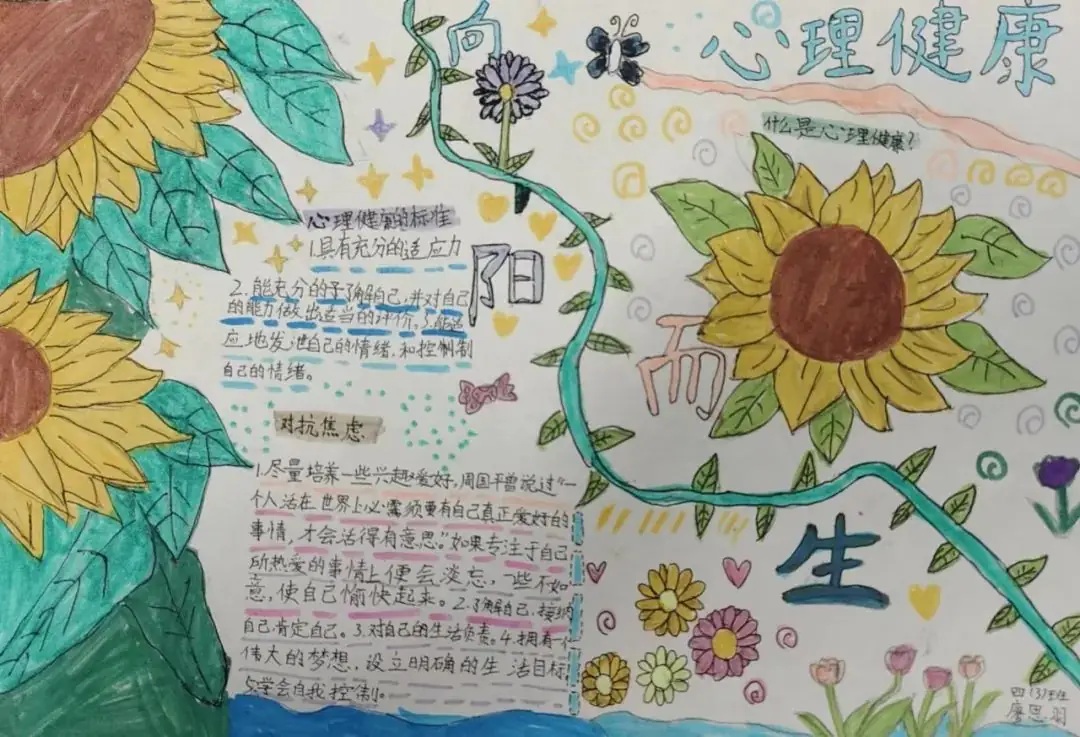 向
阳
而
生
心理健康
什么是心理健康?
心理健康的标准
1.具有充分的适应力
2.能充分的予了解自己,并对自己
的能力做出适当的评价。3.能适
应地发泄自己的情绪,和控制制
自己的情绪。
对抗焦虑
1.尽量培养一些兴趣爱好,周国平曾说过“一
个人活在世界上必需须要有自己真正爱好的
事情,才会活得有意思。”如果专注于自己
所热爱的事情上便会淡忘,一些不如
意,使自己愉快起来。2.了解自己,接纳
自己肯定自己。3.对自己的生活负责。4.拥有个
伟大的梦想,设立明确的生活目标,
5.学会自我控制。
四(3)班
廖思羽